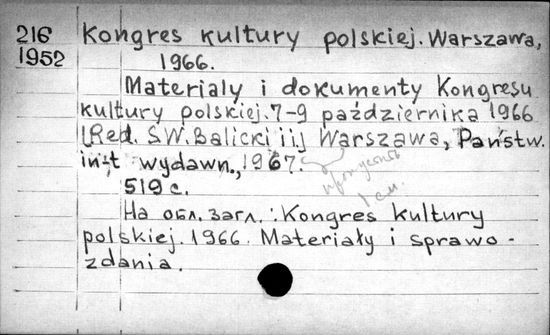 216 Kongres kultury polskiej. Warszawa,
1952 1966.
Materialy i dokumenty Kongresu
kultury polskiej. 7-9 października 1966
[Red. S.W. Balicki i i.] Warszawa, Państw.
in-t wydawn., 1967.
пропускать
1 см.
519 с.
На обл. загл.: Kongres kultury
polskiej. 1966. Materiały i sprawo-
zdania.